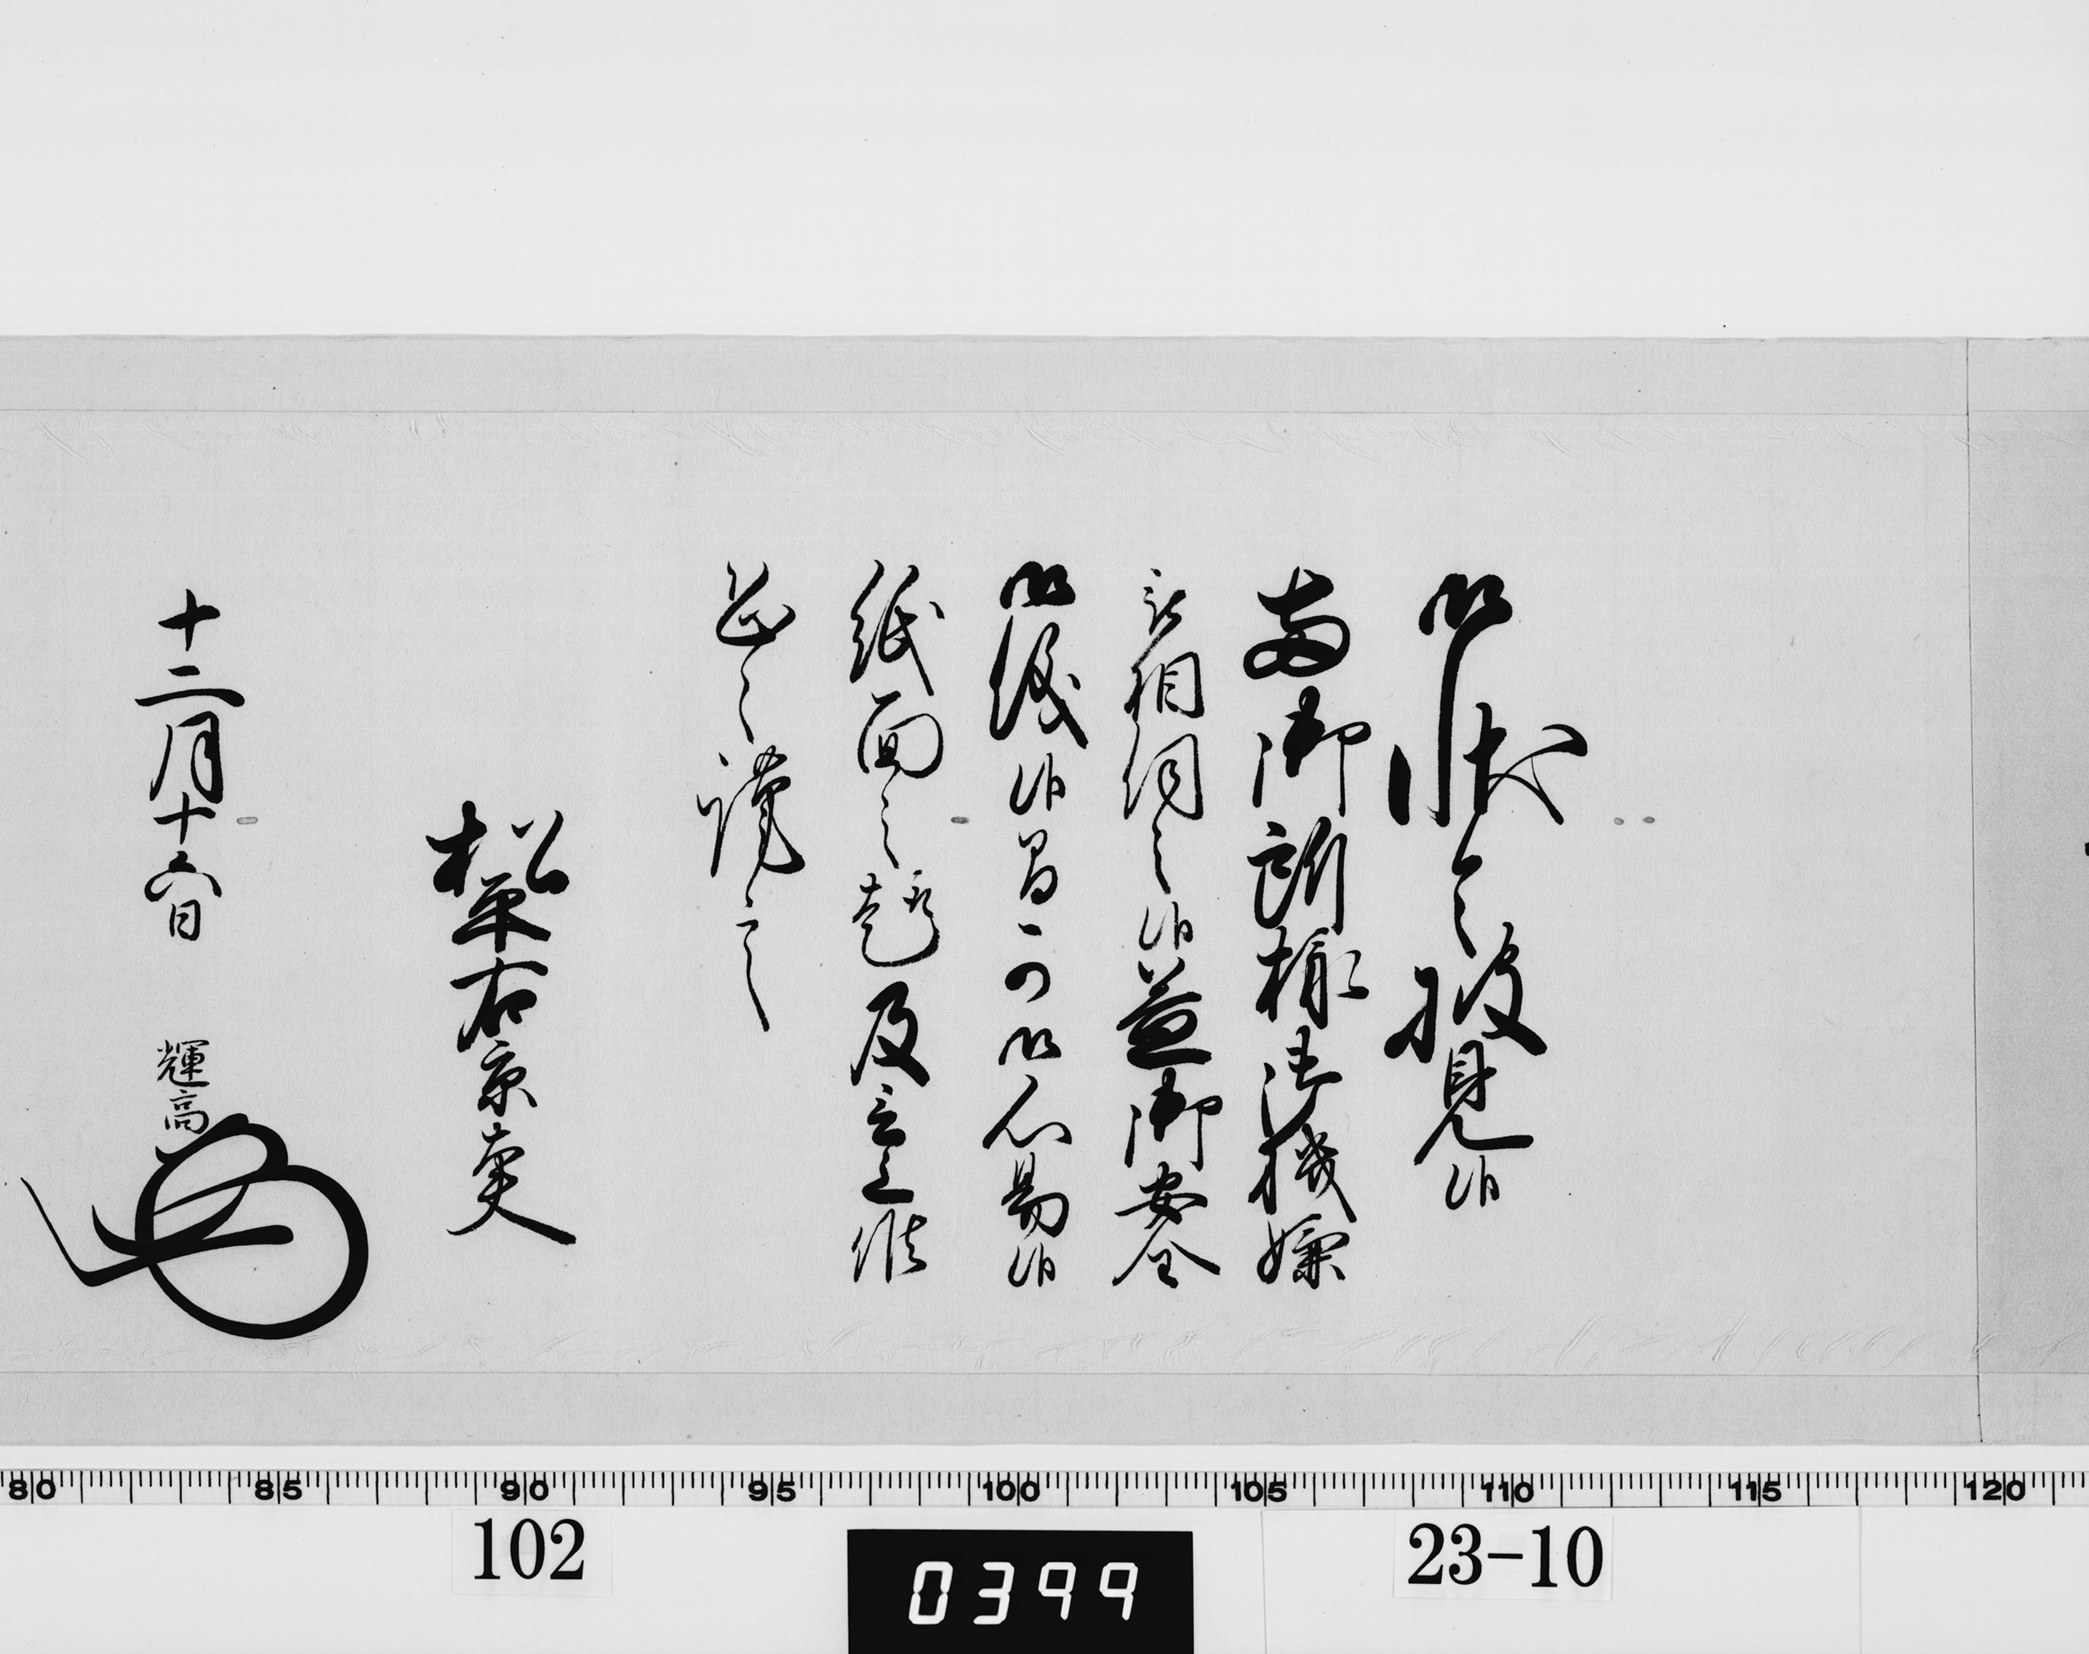 御状令披見候
両御所様御機嫌
被相伺之候益御安全
御儀候間可御心易候
紙面之趣及言上候
恐々謹言
松平右京大夫
十二月十六日 輝高
80 85 90 95 100 105 110 115 120
102
0399
23-10